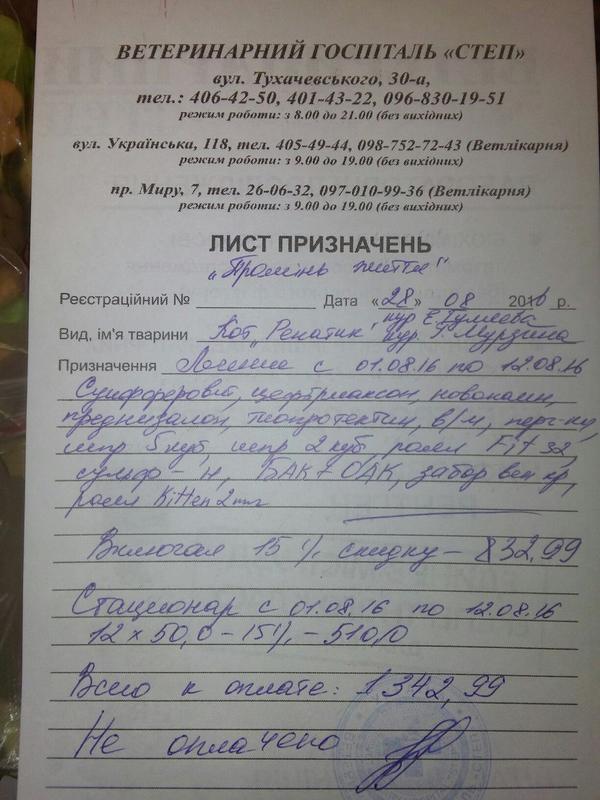 ВЕТЕРИНАРНИЙ ГОСПІТАЛЬ «СТЕП»
вул. Тухачевського, 30-а,
тел.: 406-42-50, 401-43-22, 096-830-19-51
режим роботи: з 8.00 до 21.00 (без вихідних)
вул. Українська, 118, тел. 405-49-44, 098-752-72-43 (Ветлікарня)
режим роботи: з 9.00 до 19.00 (без вихідних)
пр. Миру, 7, тел. 26-06-32, 097-010-99-36 (Ветлікарня)
режим роботи: з 9.00 до 19.00 (без вихідних)
ЛИСТ ПРИЗНАЧЕНЬ
„Промінь життя"
Реєстраційний № Дата «28» 08 2016 р.
кур Е. Гуляева
Вид, ім'я тварини Кот „Ренатик" кур. Г. Мурзина
Призначення Лечение с 01.08.16 по 12.08.16
цефтриаксон, новокаин,
преднизалон, в/м,
шпр 5куб, шпр 2куб, роял Fit 32,
БАК + ОАК, забор вен кр,
роял Kitten 2шт
Включая 15% скидку - 832,99
Стационар с 01.08.16 по 12.08.16
12 х 50,0 - 15% - 510,0
Всего к оплате: 1342,99
Не оплачено